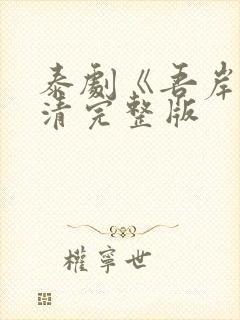 泰劇《吾岸
清完整版
權寧世